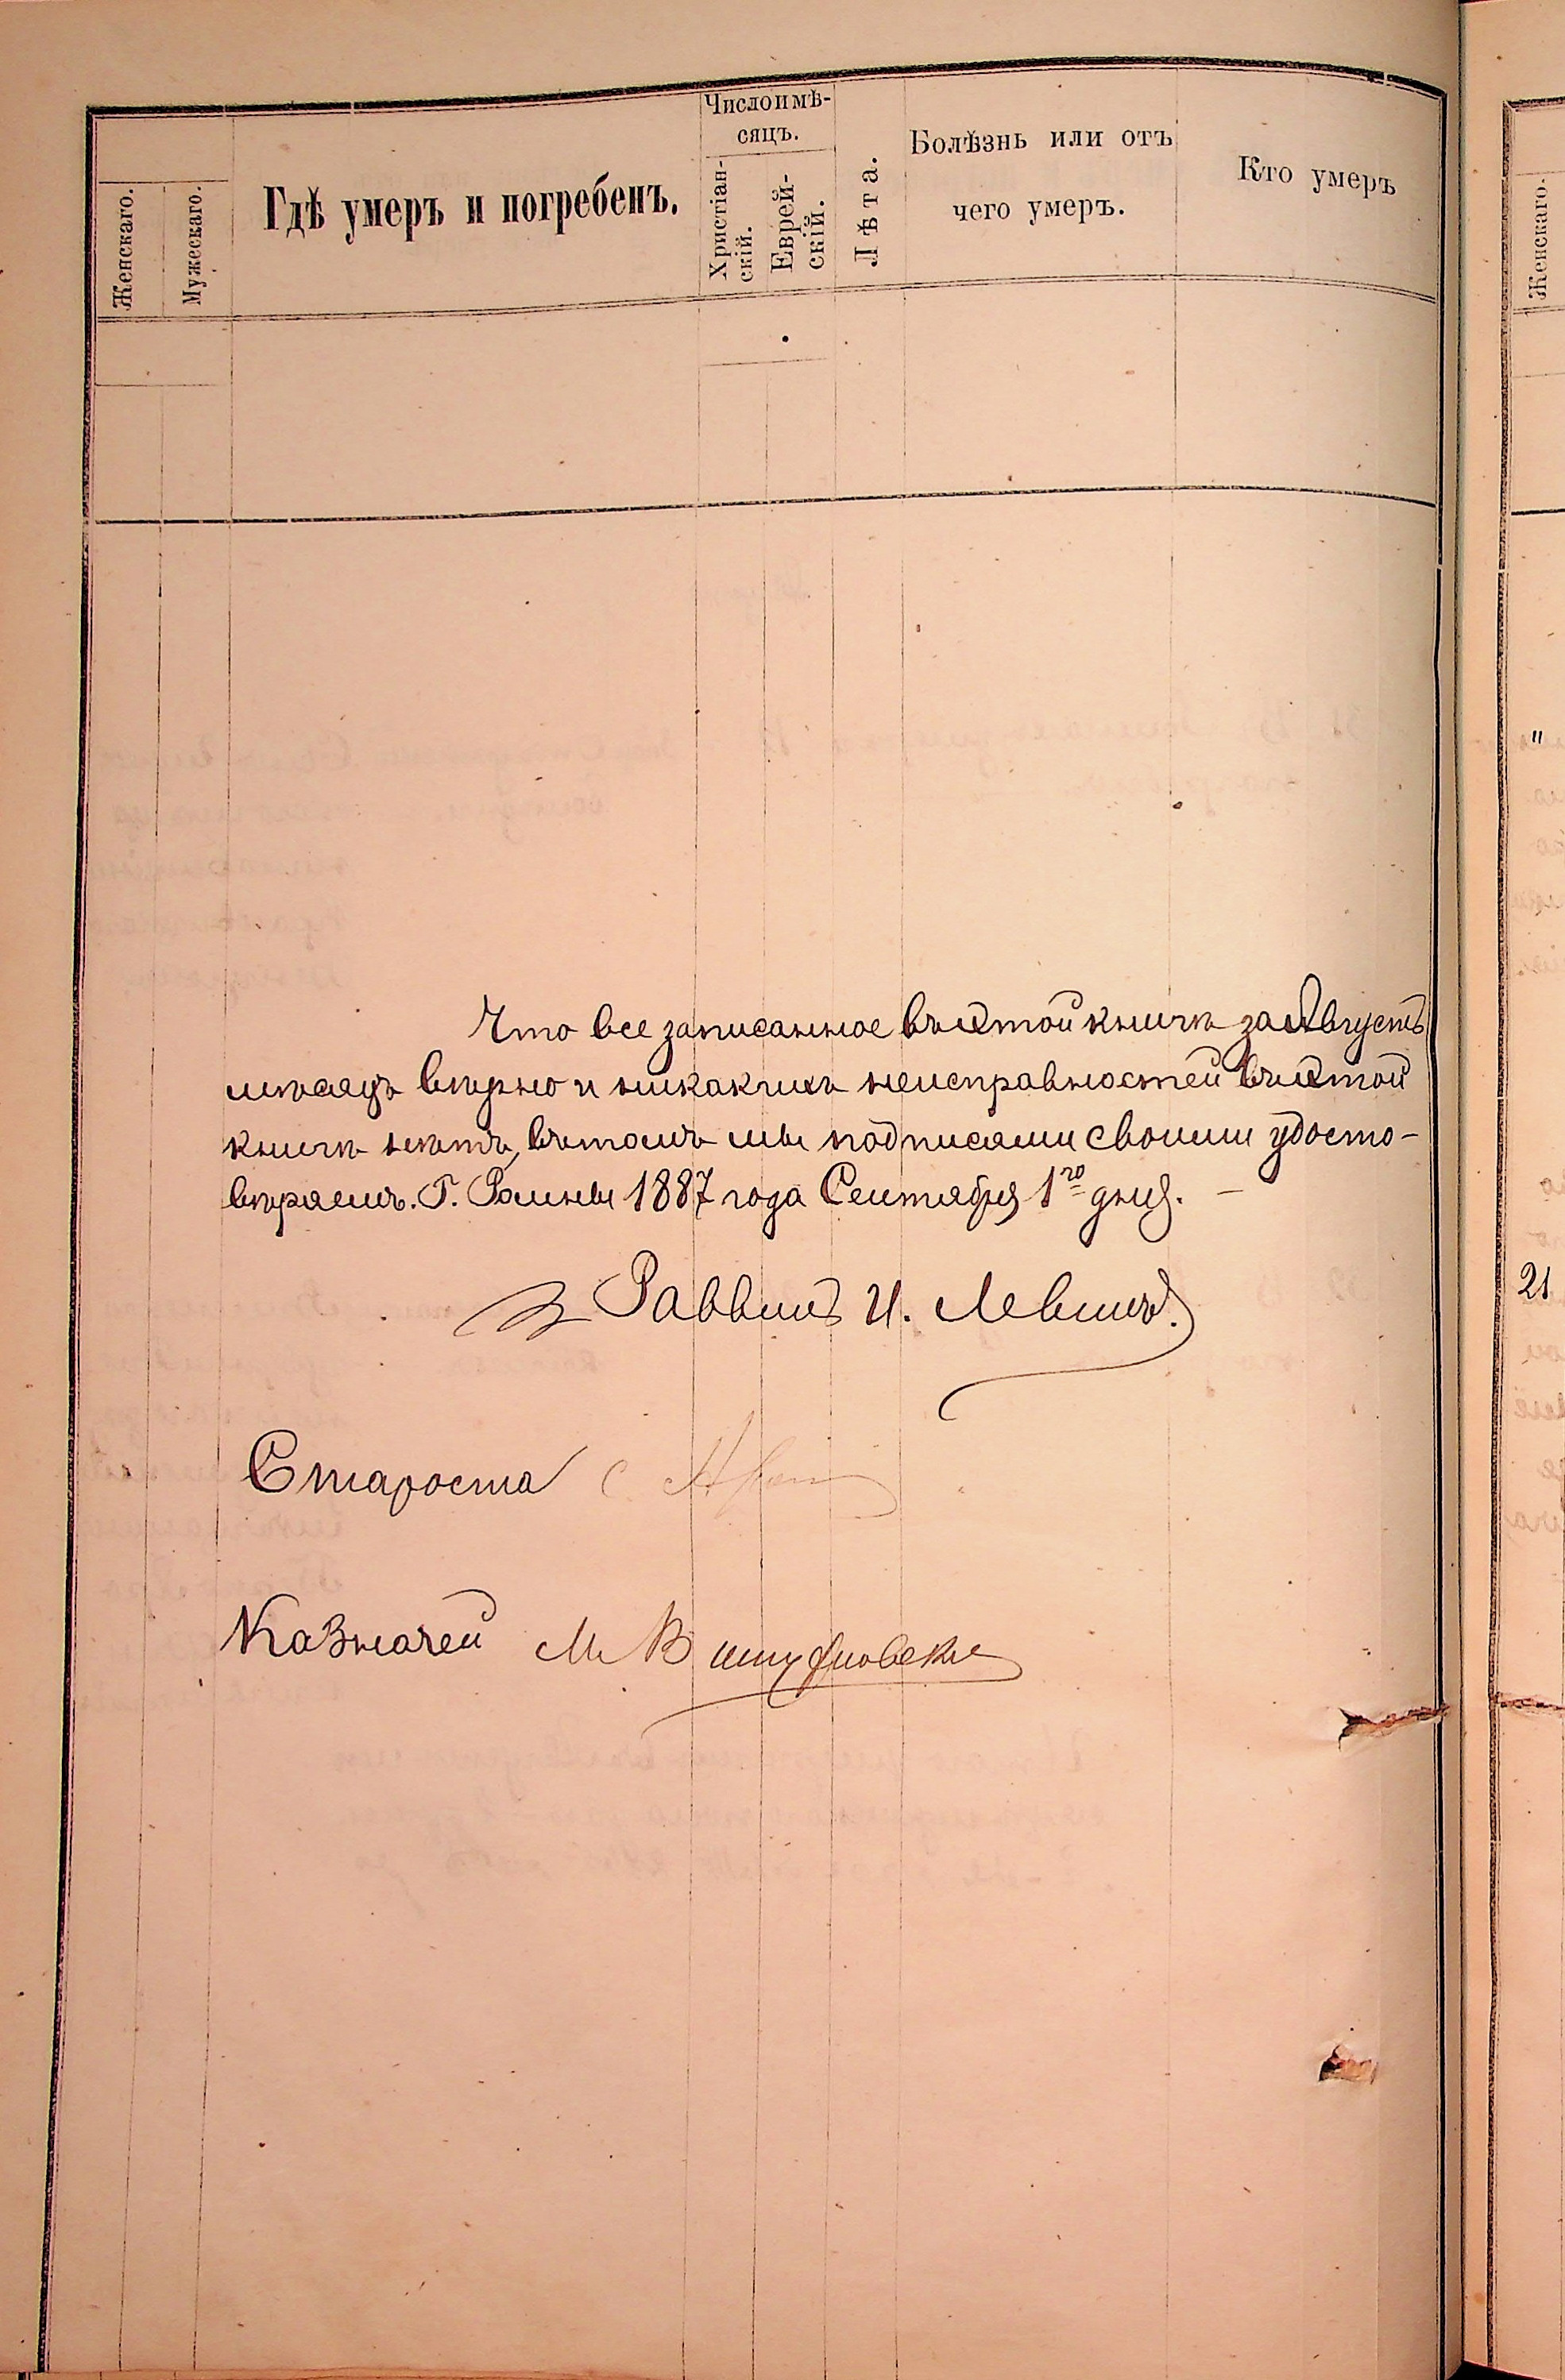 Женскаго.
Мужескаго.
Гдѣ умеръ и погребенъ.
Число и мѣ-
сяцъ.
Христіан-
скій.
Еврей-
скій.
Лѣта.
Болѣзнь или отъ
чего умеръ.
Кто умеръ
Что все записанное въ этой книгѣ за Августъ
мѣсяцъ вѣрно и никакихъ неисправностей въ этой
книгѣ нѣтъ, въ томъ мы подписями своими удосто-
вѣряемъ. Г. Ромны 1887 года Сентября 1го дня. —
Раввинъ И. Левинъ.
Староста
Казначей М
Женскаго.
"
21